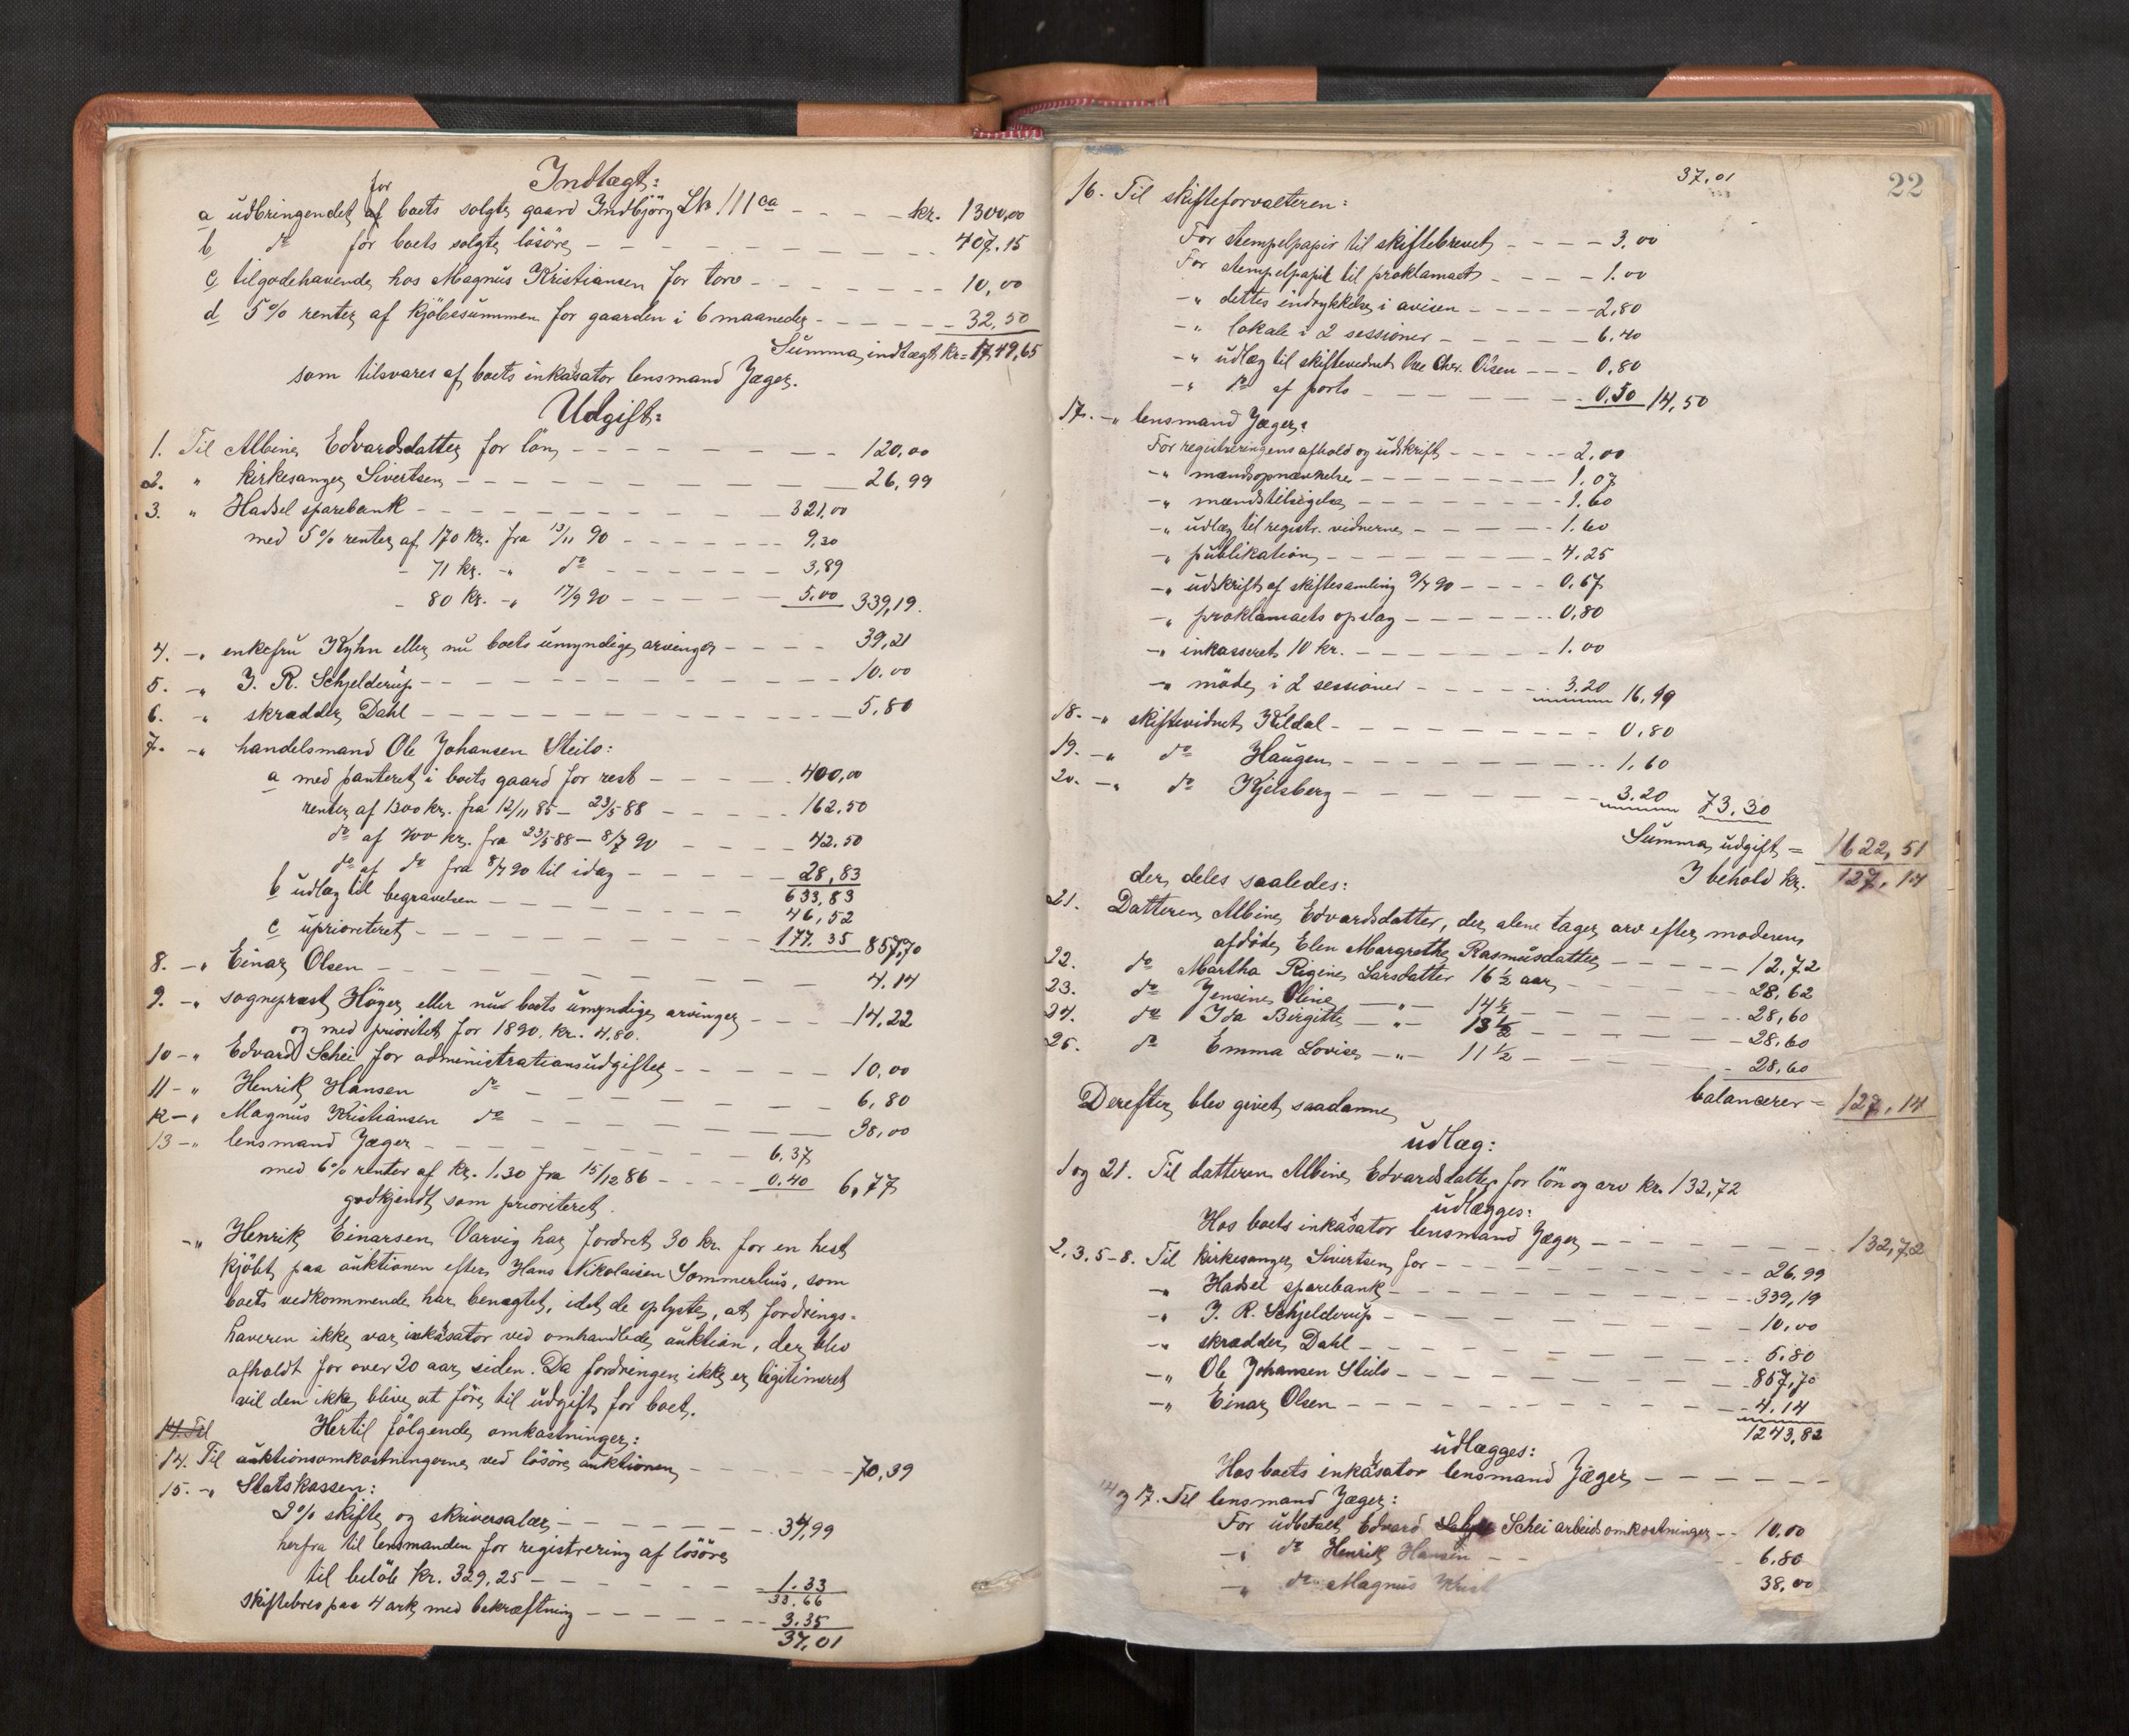 Indtægt:
a udbringendet for boets solgte gaard Indbjörg Lk 111 ca - - - - kr. 1300,00
b do for boets solgte lösöre - - - - 407.15
c tilgodehavende hos Magnus Kristiansen for torv - - - - 10,00
d 5% renter af kjöbesummen for gaarden i 6 maaneder - - - - 32,50
Summa indtægt kr = 1749,65
som tilsvares af boets inkassator lensmand Jæger.
Udgift:
1. Til Albine Edvardsdatter for lön - - - - 120,00
2. " kirkesanger Sivertsen - - - - 26,99
3. " Hadsel sparebank - - - - 321.00
med 5% renter af 170 kr. fra 13/11 90 - - - - 9,30
- 71 kr. -" do - - - - 3,89
- 80 kr. -" 17/9 90 - - - - 5.00 339,19.
4. -" enkefru Kyhn eller nu boets umyndige arvinger - - - - 39,21
5. -" J. R. Schjelderup - - - - 10.00
6. -" skrædder Dahl - - - - 5,80
7. -" handelsmand Ole Johansen Steilo:
a med panteret i boets gaard for rest - - - - 400,00
renter af 1300 kr. fra 12/11 85 - 23/5 88 - - - - 162.50
do af 400 kr. fra 23/5 88 - 8/7 90 - - - - 42.50
do af do fra 8/7 90 til idag - - - - 28,83
633,83
b udlæg til begravelsen - - - - 46,52
c uprioriteret - - - - 177.35 857,70
8. -" Einar Olsen - - - - 4.14
9. -" sogneprest Höyer eller nu boets umyndige arvinger - - - - 14,22
og med prioritet for 1890. kr. 4,80.
10 -" Edvard Schei for administrationsudgifter - - - - 10.00
11 -" Henrik Hansen do - - - - 6,80
12 -" Magnus Kristiansen do - - - - 38,00
13 -" lensmand Jæger - - - - 6.37
med 6% renter af kr. 1.30 fra 15/12 86 - - - - 0.40 6,77
godkjendt som prioriteret.
-" Henrik Einarsen Varvig har fordret 30 kr. for en hest
kjöbt paa auktionen efter Hans Nikolaisen Sommerhus, som
boets vedkommende har benægtet, idet de oplyste, at fordrings-
haveren ikke var inkassator ved omhandlede auktion, der blev
afholdt for over 20 aar siden. Da fordringen ikke er legitimeret
vil den ikke blive at före til udgift for boet.
14. Til
Hertil fölgende omkostninger:
14. Til auktionsomkostningerne ved lösöre auktionen - - - - 70,39
15. -" Statskassen:
2% skifte og skriversalær - - - - 34,99
herfra til lensmanden for registrering af lösöre
til belöb kr. 329,25 - - - - 1.33
33.66
Skiftebrev paa 4 ark med bekræftning - - - - 3.35
37,01
22
37,01
16. Til skifteforvalteren:
For stempelpapir til skiftebrevet - - - - 3.00
For stempelpapir til proklamaet - - - - 1.00
-" dettes indrykkelse i avisen - - - - 2,80
-" lokale i 2 sessioner - - - - 6.40
-" udlæg til skiftevidnet Ole Chr. Olsen - - - 0.80
-" do af porto - - - - 0.50 14,50
17. -" lensmand Jæger:
For registreringens afhold og udskrift - - - - 2.00
-" mandsopnævnelse - - - - 1.07
-" mandstilsigelse - - - - 1.60
-" udlæg til registr. vidnerne - - - - 1.60
-" publikation - - - - 4.25
-" udskrift af skiftesamling 9/7 90 - - - - 0.67
-" proklamaets opslag - - - - 0,80
-" inkasseret 10 kr. - - - - 1.00
-" möde i 2 sessioner - - - - 3.20 16,19
18. -" skiftevidnet Kildal - - - - 0,80
19. -" do Haugen - - - - 1,60
20. -" do Kjelsberg - - - - 3.20 73.30
Summa udgift = 1622,51
I behold kr. 127,14
der deles saaledes:
21. Datteren Albine Edvardsdatter, der alene tager arv efter moderen
afdöde Elen Margrethe Rasmusdatter - - - - 12,72
22. do Martha Rigine Larsdatter 16½ aar - - - - 28,62
23. do Jensine Oline -"- 14½ - - - - 28,60
24. do Ida Birgitte -"- 13½ - - - - 28.60
25. do Emma Lovise -"- 11½ - - - - 28,60
balancerer = 127,14
Derefter blev givet saadanne
udlæg:
1 og 21. Til datteren Albine Edvardsdatter for lön og arv kr. 132,72
udlægges:
Hos boets inkassator lensmand Jæger - - - - 132,72
2, 3, 5-8. Til kirkesanger Sivertsen for - - - - 26,99
-" Hadsel sparebank - - - - 339,19
-" J. R. Schjelderup - - - - 10,00
-" skrædder Dahl - - - - 5.80
-" Ole Johansen Steilo - - - - 857,70
-" Einar Olsen - - - - 4.14
1243,82
udlægges:
Hos boets inkassator lensmand Jæger - - - -
14 og 17. Til lensmand Jæger:
For udbetalt Edvard Schei arbeidsomkostninger - - 10,00
-" do Henrik Hansen - - 6.80
-" do Magnus Krist 38,00